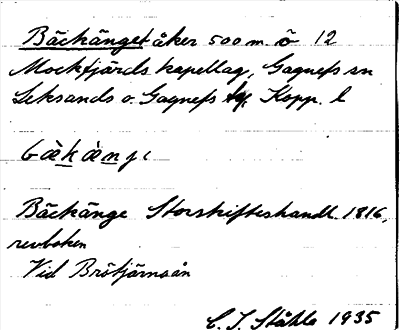 Bäckänget åker 500 m. ö 12
Mockfjärds kapellag, Gagnefs sn
Leksands o. Gagnefs tg. Kopp. l
bäkänjı
Bäckänge Storskifteshandl. 1816,
revboken
Vid Brötjärnaån
E. I. Ståhle 1935